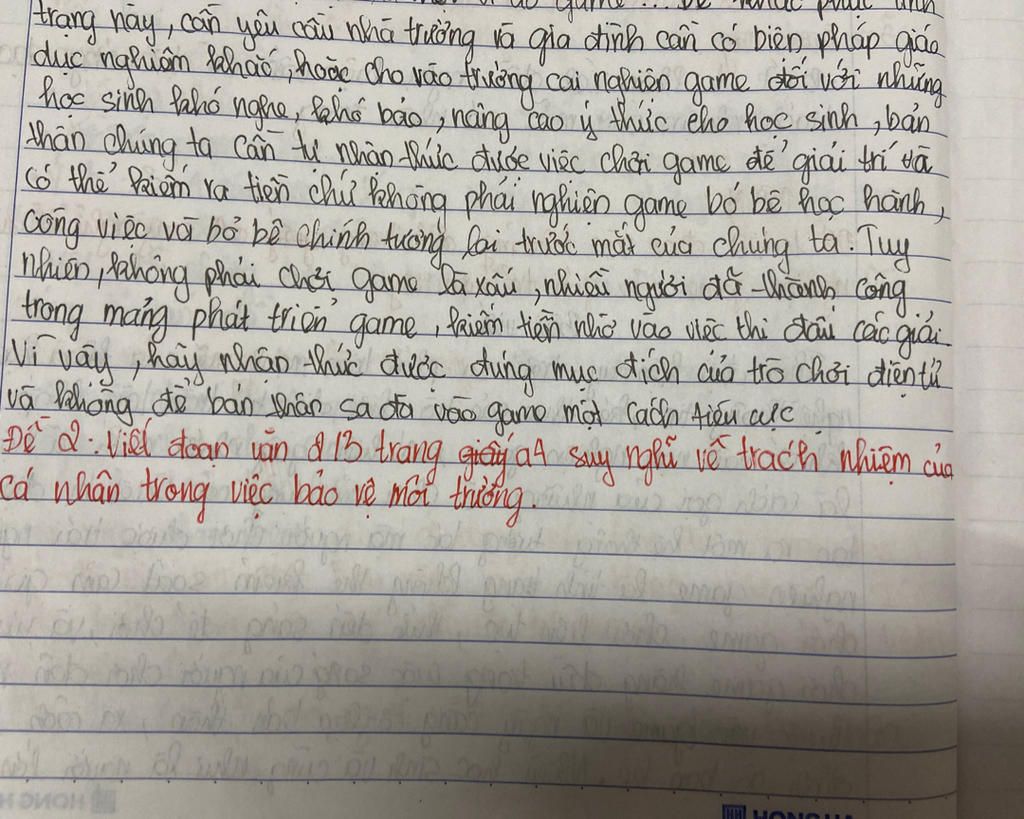 trạng này, cần yêu cầu nhà trường và gia đình cần có biện pháp giáo
dục nghiêm khắc, hoặc cho vào trường cai nghiện game đối với những
học sinh khó nghe, khó bảo, nâng cao ý thức cho học sinh, bản
thân chúng ta cần tự nhận thức được việc chơi game để giải trí và
có thể kiếm ra tiền chứ không phải nghiện game bỏ bê học hành,
công việc và bỏ bê chính tương lai trước mắt của chúng ta. Tuy
nhiên, không phải chơi game là xấu, nhiều người đã thành công
trong mảng phát triển game, kiếm tiền nhờ vào việc thi đấu các giải.
Vì vậy, hãy nhận thức được đúng mục đích của trò chơi điện tử
và không để bản thân sa đà vào game một cách tiêu cực
Đề 2: Viết đoạn văn 2/3 trang giấy a4 suy nghĩ về trách nhiệm của
cá nhân trong việc bảo vệ môi trường.
HONG HA